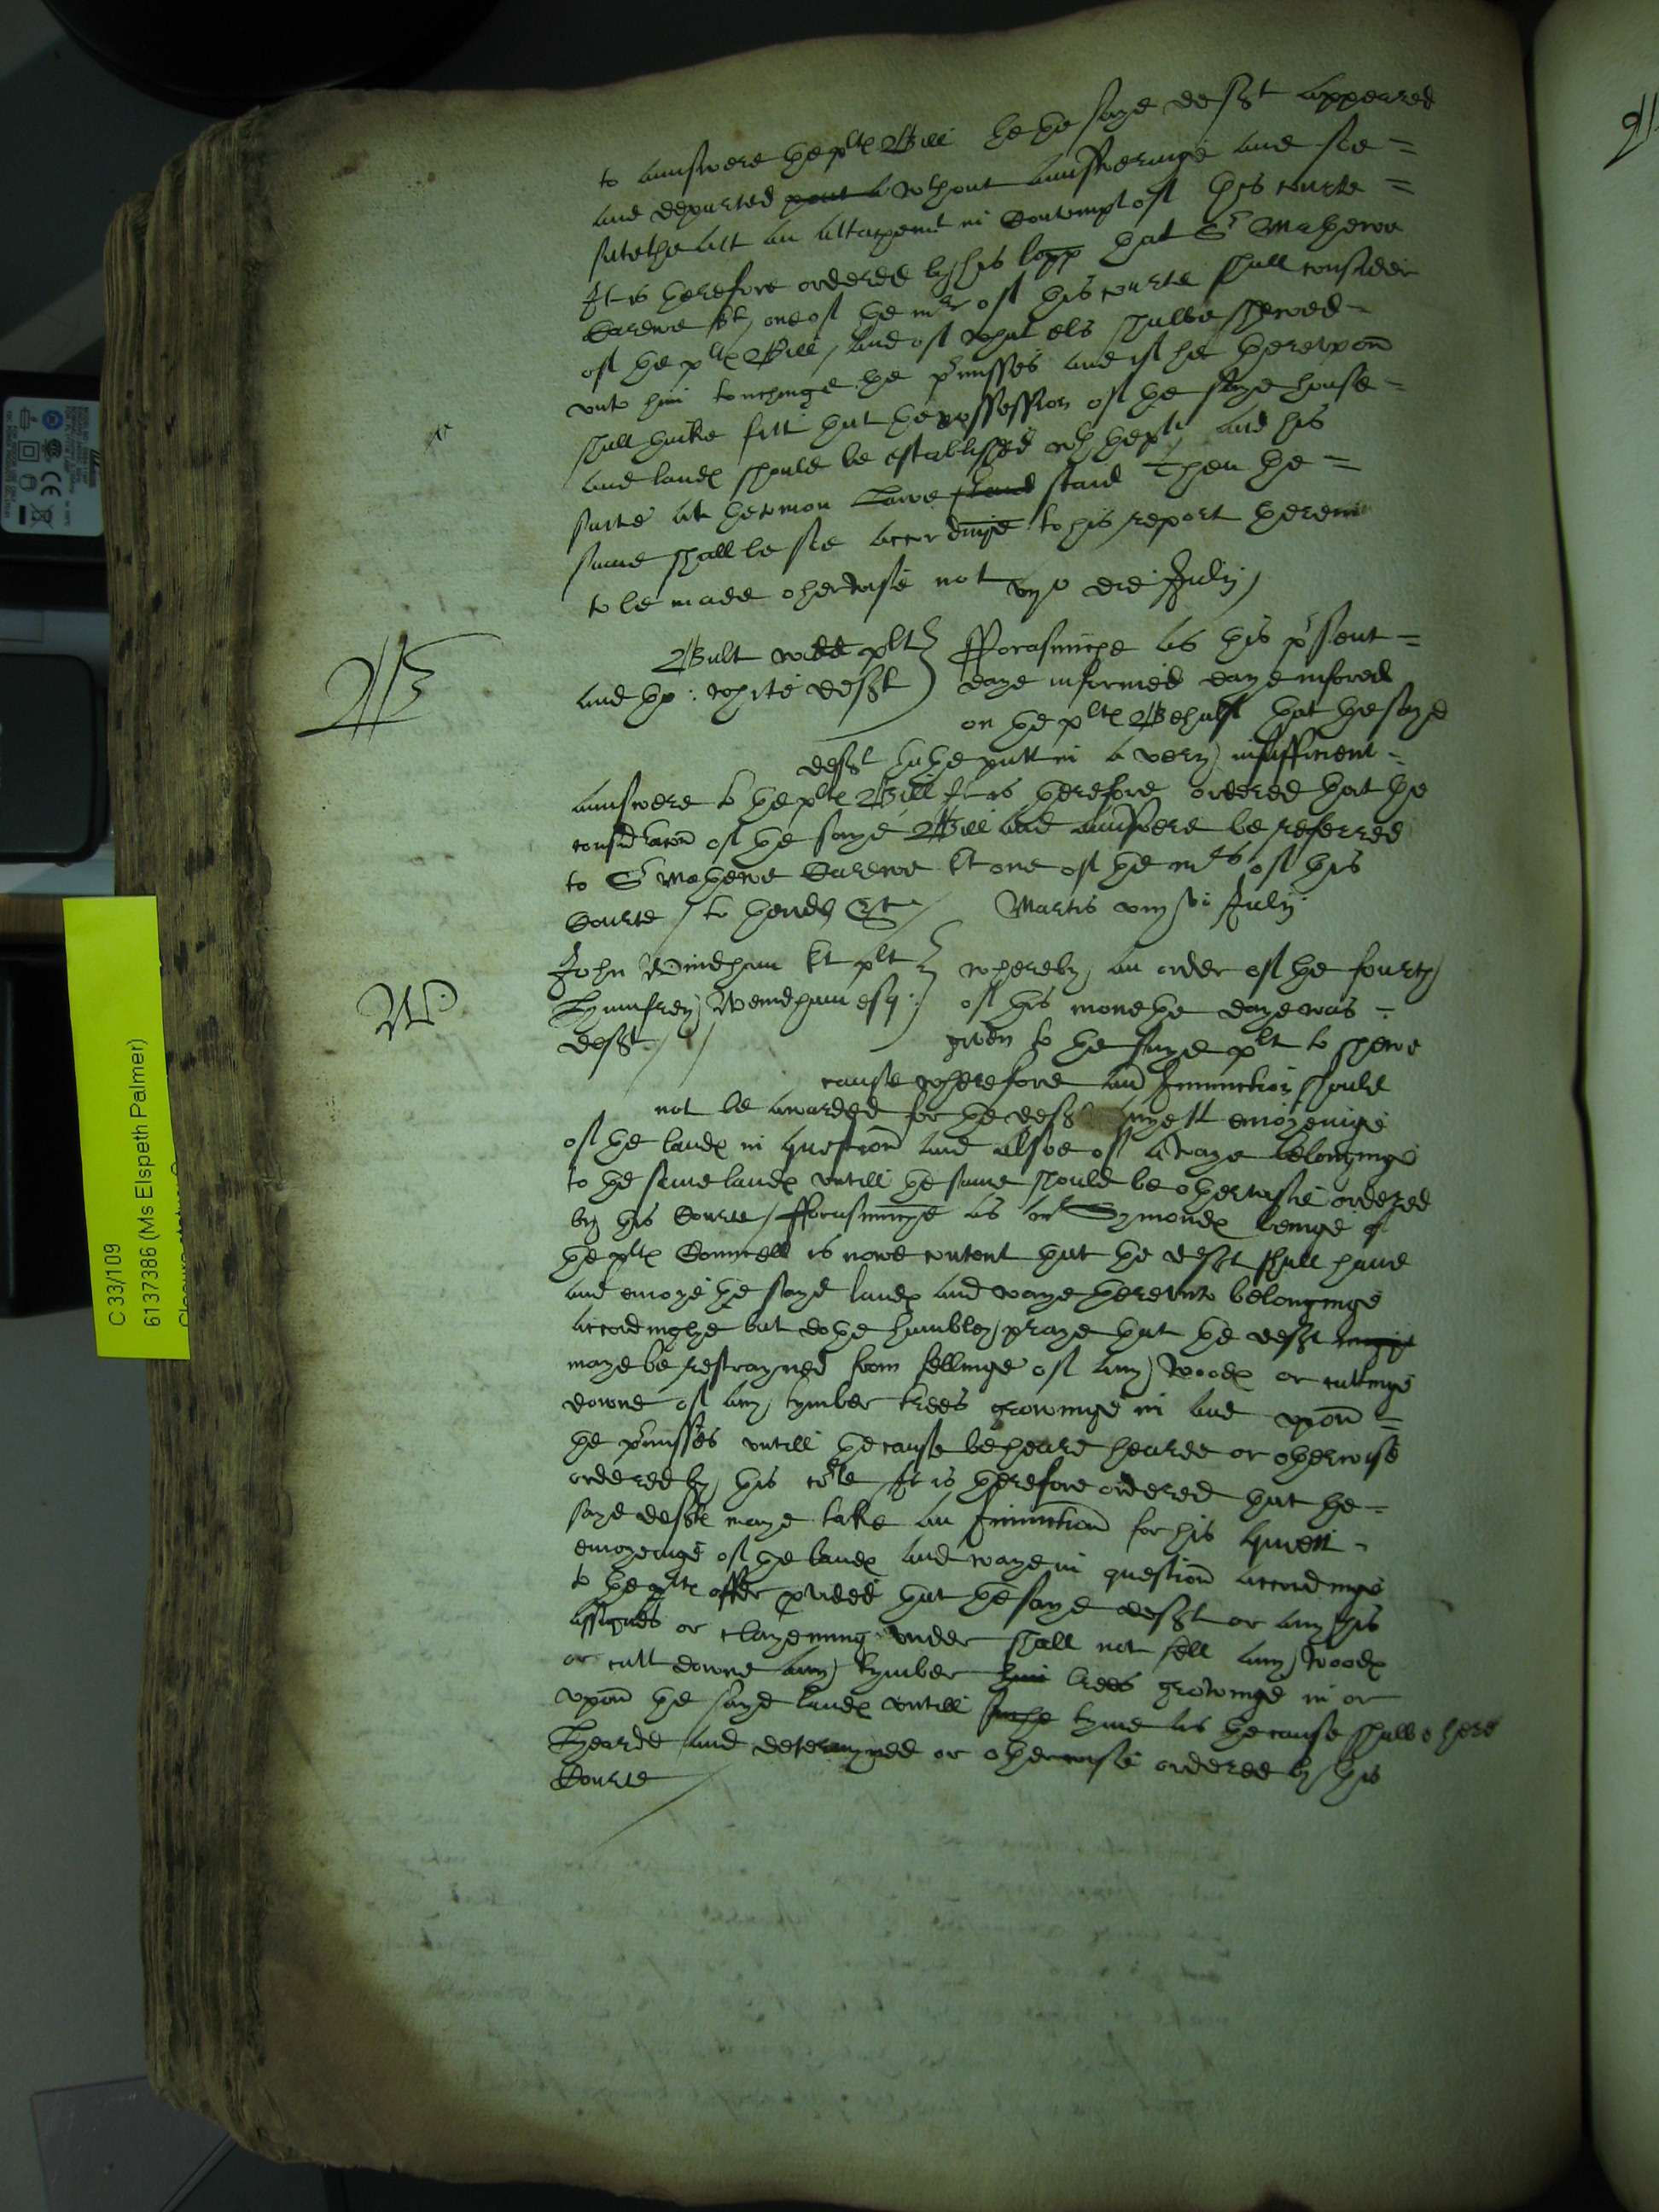 to aunswere the pltes Bill the the saye deft appeared
and departed without aunsweringe and soe =
satethe att an attachemt in Contempt of this courte =
It is therefore ordered by this lopp that Sr Mathewe
Carewe kt, one of the mrs of this courte shall consider
of the pltes Bill, and of what els shalbe shewed =
unto him touchinge the pmisses and if he thereupon
shall thinke fitt that the possession of the saye house =
and landes should be established wth the plt, and his
suite at the comon Lawe staid Then the =
same shall be soe accordinge to his report therein
to be made otherwise not vijo die Julij
Bult widd plt
and th: white deft
fforasmuche as this psent =
daye informed daye infored
on the pltes Behalf that the sayd
deft hathe putt in a very insufficient =
aunswere to the pltes Bill It is therefore ordered that the
considracon of the saye Bill and aunswere be referred
to Sr Mathewe Carewe kt one of the mrs of this
Courte / to thends Etc
Martis viij Julij
John Windham kt plt
Humfrey Wendham esq:
deft
whereby an order of the fourth
of this monethe daye was =
given to the saye plt to shewe
cause wherefore an Iniunction should
not be awarded for the deft quyett enioyenige
of the landes in question and alsoe of a waye belonginge
to the same landes untill the same should be otherwise ordered
by this Courte / fforasmuche as mr Symondes beinge of
the pltes Councell is nowe content that the deft shall have
and enioye the sayd landes and waye thereunto belonginge
accordinglye but dothe humbley praye that the deft
maye be restrayned from fellinge of any woodes or cuttinge
downe of any tymber trees growinge in and upon =
the pmisses untill the cause be heard hearde or otherwise
ordered by this corte It is therefore ordered that the =
saye defte maye take an Iniunction for his quiett =
enioyenige of the landes and waye in question accordinge
to the pltes offer pvided that the sayd deft or any his
assignes or clayeming under shall not fell any woodes
or cutt downe any tymber trees growinge in or
upon the sayd landes untill suche tyme as the cause shalbe here
Hearde and determyned or otherwise ordered by this
Courte
W
C 33/109
6137386 (Ms Elspeth Palmer)